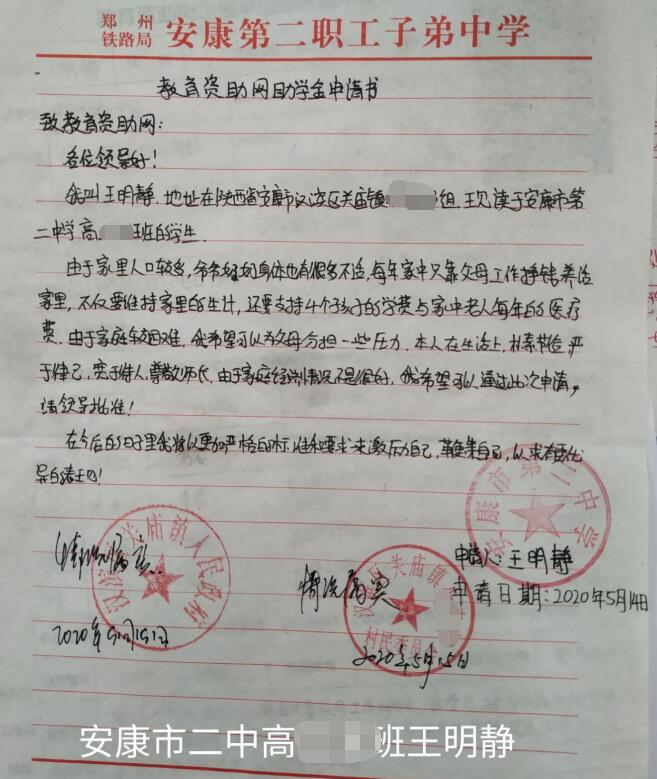 郑州
铁路局 安康第二职工子弟中学
教育资助网助学金申请书
致教育资助网:
各位领导好!
我叫王明静.地址在陕西省安康市汉滨区关庙镇 组.现读于安康市第
二中学高 班的学生.
由于家里人口较多,爷爷奶奶身体也有很多不适,每年家中只靠父母工作挣钱养活
家里,不仅要维持家里的生计,还要支持4个孩子的学费与家中老人每年的医疗
费.由于家庭较困难,我希望可以为父母分担一些压力.本人在生活上,朴素节俭,严
于律己,宽于待人,尊敬师长.由于家庭经济情况不是很好,我希望可以通过此次申请,
请领导批准!
在今后的日子里我将以更加严格的标准和要求来激励自己,鞭策自己,以求有更优
异的成绩!
安康市第二中学
申请人:王明静
申请日期:2020年5月14日
汉滨区关庙镇人民政府
情况属实.
2020年5月15日
汉滨区关庙镇
村民委员会
情况属实
2020年5月15日
安康市二中高 班王明静